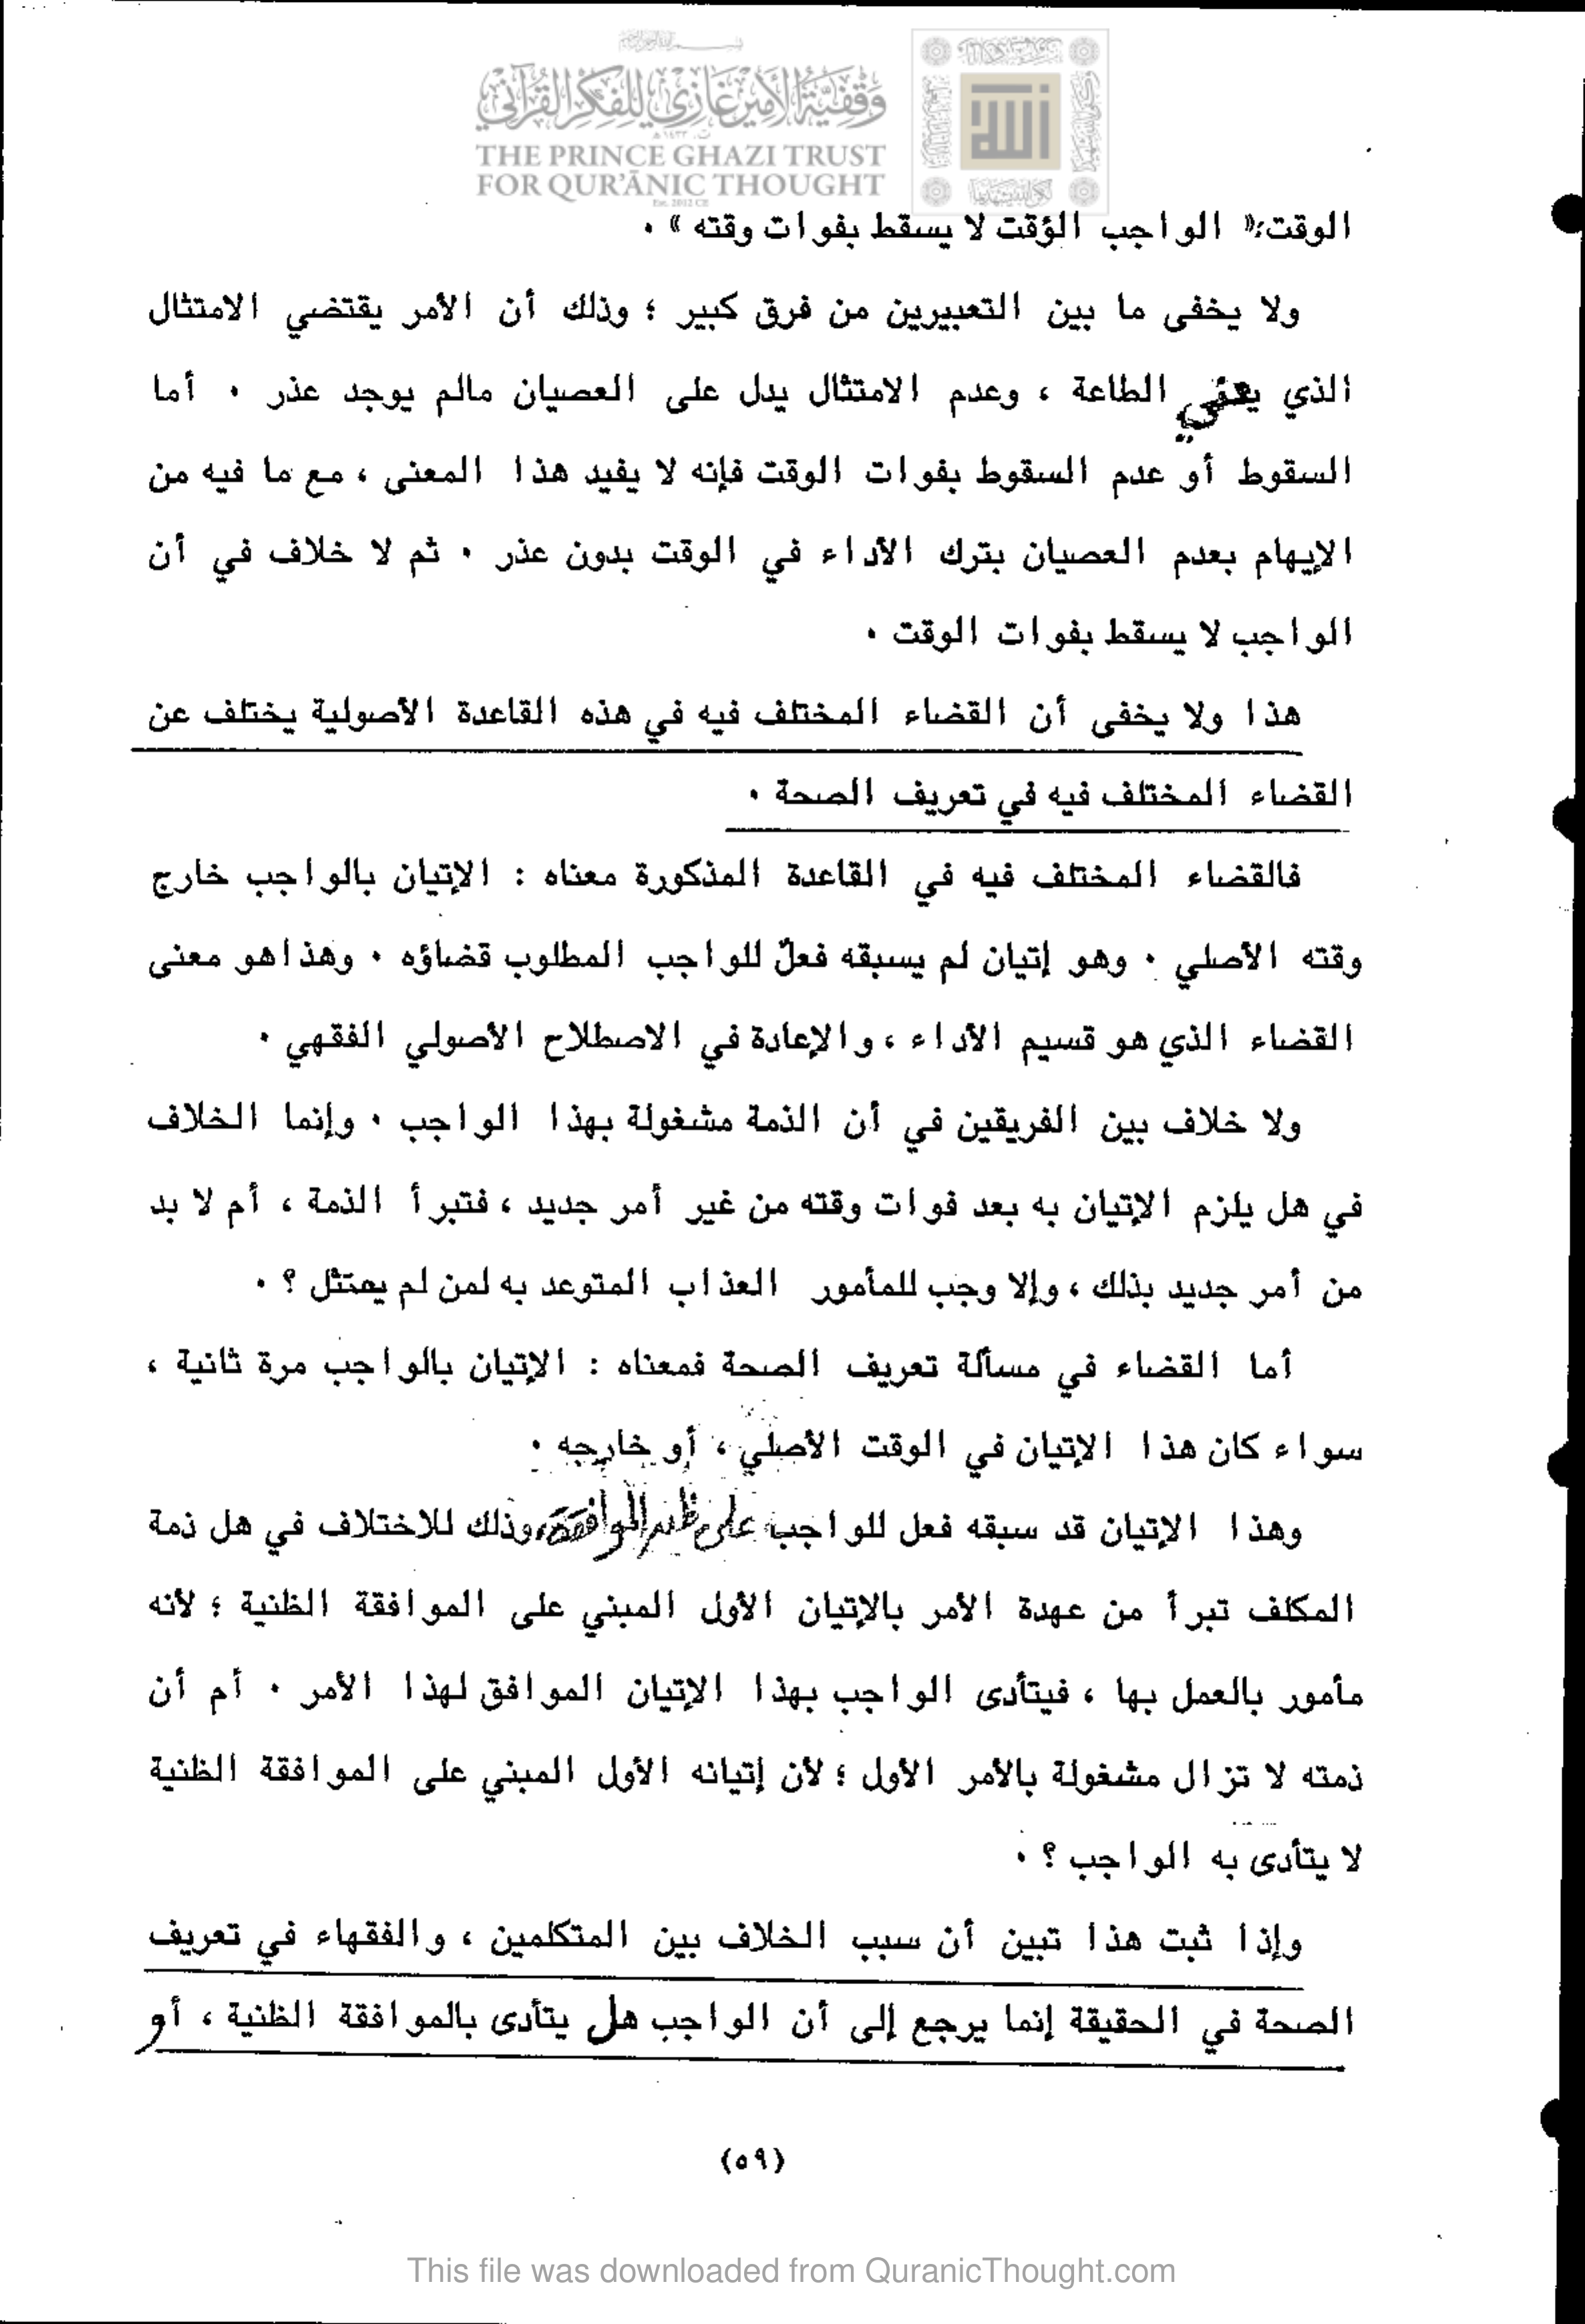 وقفية الأمير غازي للفكر القرآني
THE PRINCE GHAZI TRUST
FOR QUR'ĀNIC THOUGHT
Est. 2012 CE
الوقت: « الواجب المؤقت لا يسقط بفوات وقته » .
ولا يخفى ما بين التعبيرين من فرق كبير ؛ وذلك أن الأمر يقتضي الامتثال
الذي يعني الطاعة ، وعدم الامتثال يدل على العصيان مالم يوجد عذر . أما
السقوط أو عدم السقوط بفوات الوقت فإنه لا يفيد هذا المعنى ، مع ما فيه من
الإيهام بعدم العصيان بترك الأداء في الوقت بدون عذر . ثم لا خلاف في أن
الواجب لا يسقط بفوات الوقت .
هذا ولا يخفى أن القضاء المختلف فيه في هذه القاعدة الأصولية يختلف عن
القضاء المختلف فيه في تعريف الصحة .
فالقضاء المختلف فيه في القاعدة المذكورة معناه : الإتيان بالواجب خارج
وقته الأصلي . وهو إتيان لم يسبقه فعلٌ للواجب المطلوب قضاؤه . وهذا هو معنى
القضاء الذي هو قسيم الأداء ، والإعادة في الاصطلاح الأصولي الفقهي .
ولا خلاف بين الفريقين في أن الذمة مشغولة بهذا الواجب . وإنما الخلاف
في هل يلزم الإتيان به بعد فوات وقته من غير أمر جديد ، فتبرأ الذمة ، أم لا بد
من أمر جديد بذلك ، وإلا وجب للمأمور العذاب المتوعد به لمن لم يمتثل ؟ .
أما القضاء في مسألة تعريف الصحة فمعناه : الإتيان بالواجب مرة ثانية ،
سواء كان هذا الإتيان في الوقت الأصلي ، أو خارجه .
وهذا الإتيان قد سبقه فعل للواجب على ظن الموافقة، وذلك للاختلاف في هل ذمة
المكلف تبرأ من عهدة الأمر بالإتيان الأول المبني على الموافقة الظنية ؛ لأنه
مأمور بالعمل بها ، فيتأدى الواجب بهذا الإتيان الموافق لهذا الأمر . أم أن
ذمته لا تزال مشغولة بالأمر الأول ؛ لأن إتيانه الأول المبني على الموافقة الظنية
لا يتأدى به الواجب ؟ .
وإذا ثبت هذا تبين أن سبب الخلاف بين المتكلمين ، والفقهاء في تعريف
الصحة في الحقيقة إنما يرجع إلى أن الواجب هل يتأدى بالموافقة الظنية ، أو
(٥٩)
This file was downloaded from QuranicThought.com